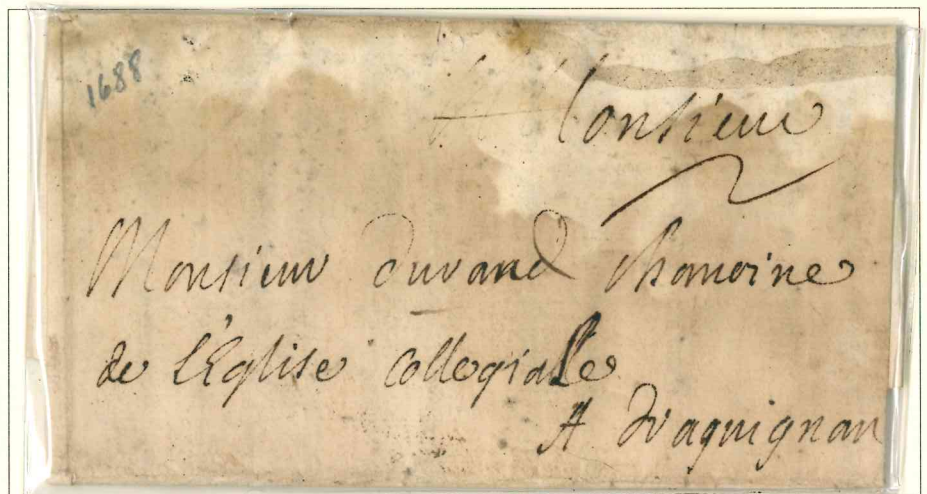 1688
Monsieur
Monsieur durand Chanoine
de l'Eglise Collegialle
A draguignan